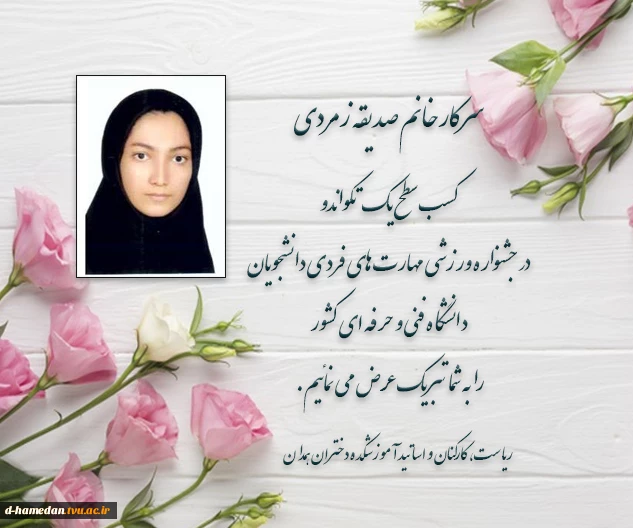 سرکار خانم صدیقه زمردی
کسب سطح یک تکواندو
در جشنواره ورزشی مهارت های فردی دانشجویان
دانشگاه فنی و حرفه ای کشور
را به شما تبریک عرض می نمائیم .
ریاست، کارکنان و اساتید آموزشکده دختران همدان
d-hamedan.tvu.ac.ir